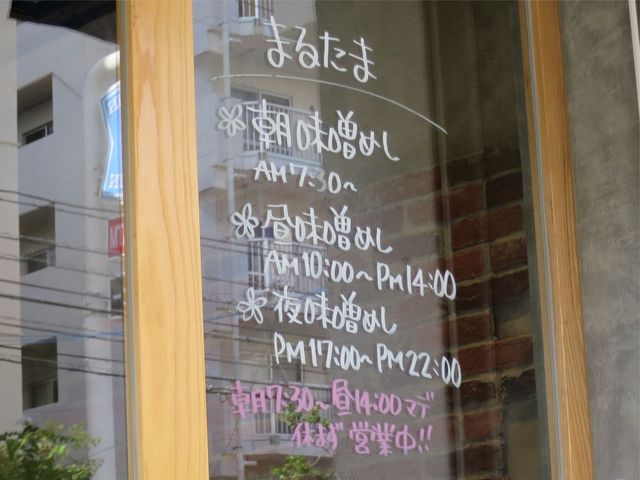 まるたま
朝味噌めし
AM7:30~
昼味噌めし
AM10:00~PM14:00
夜味噌めし
PM17:00~PM22:00
朝7:30~昼14:00マデ
休まず営業中!!